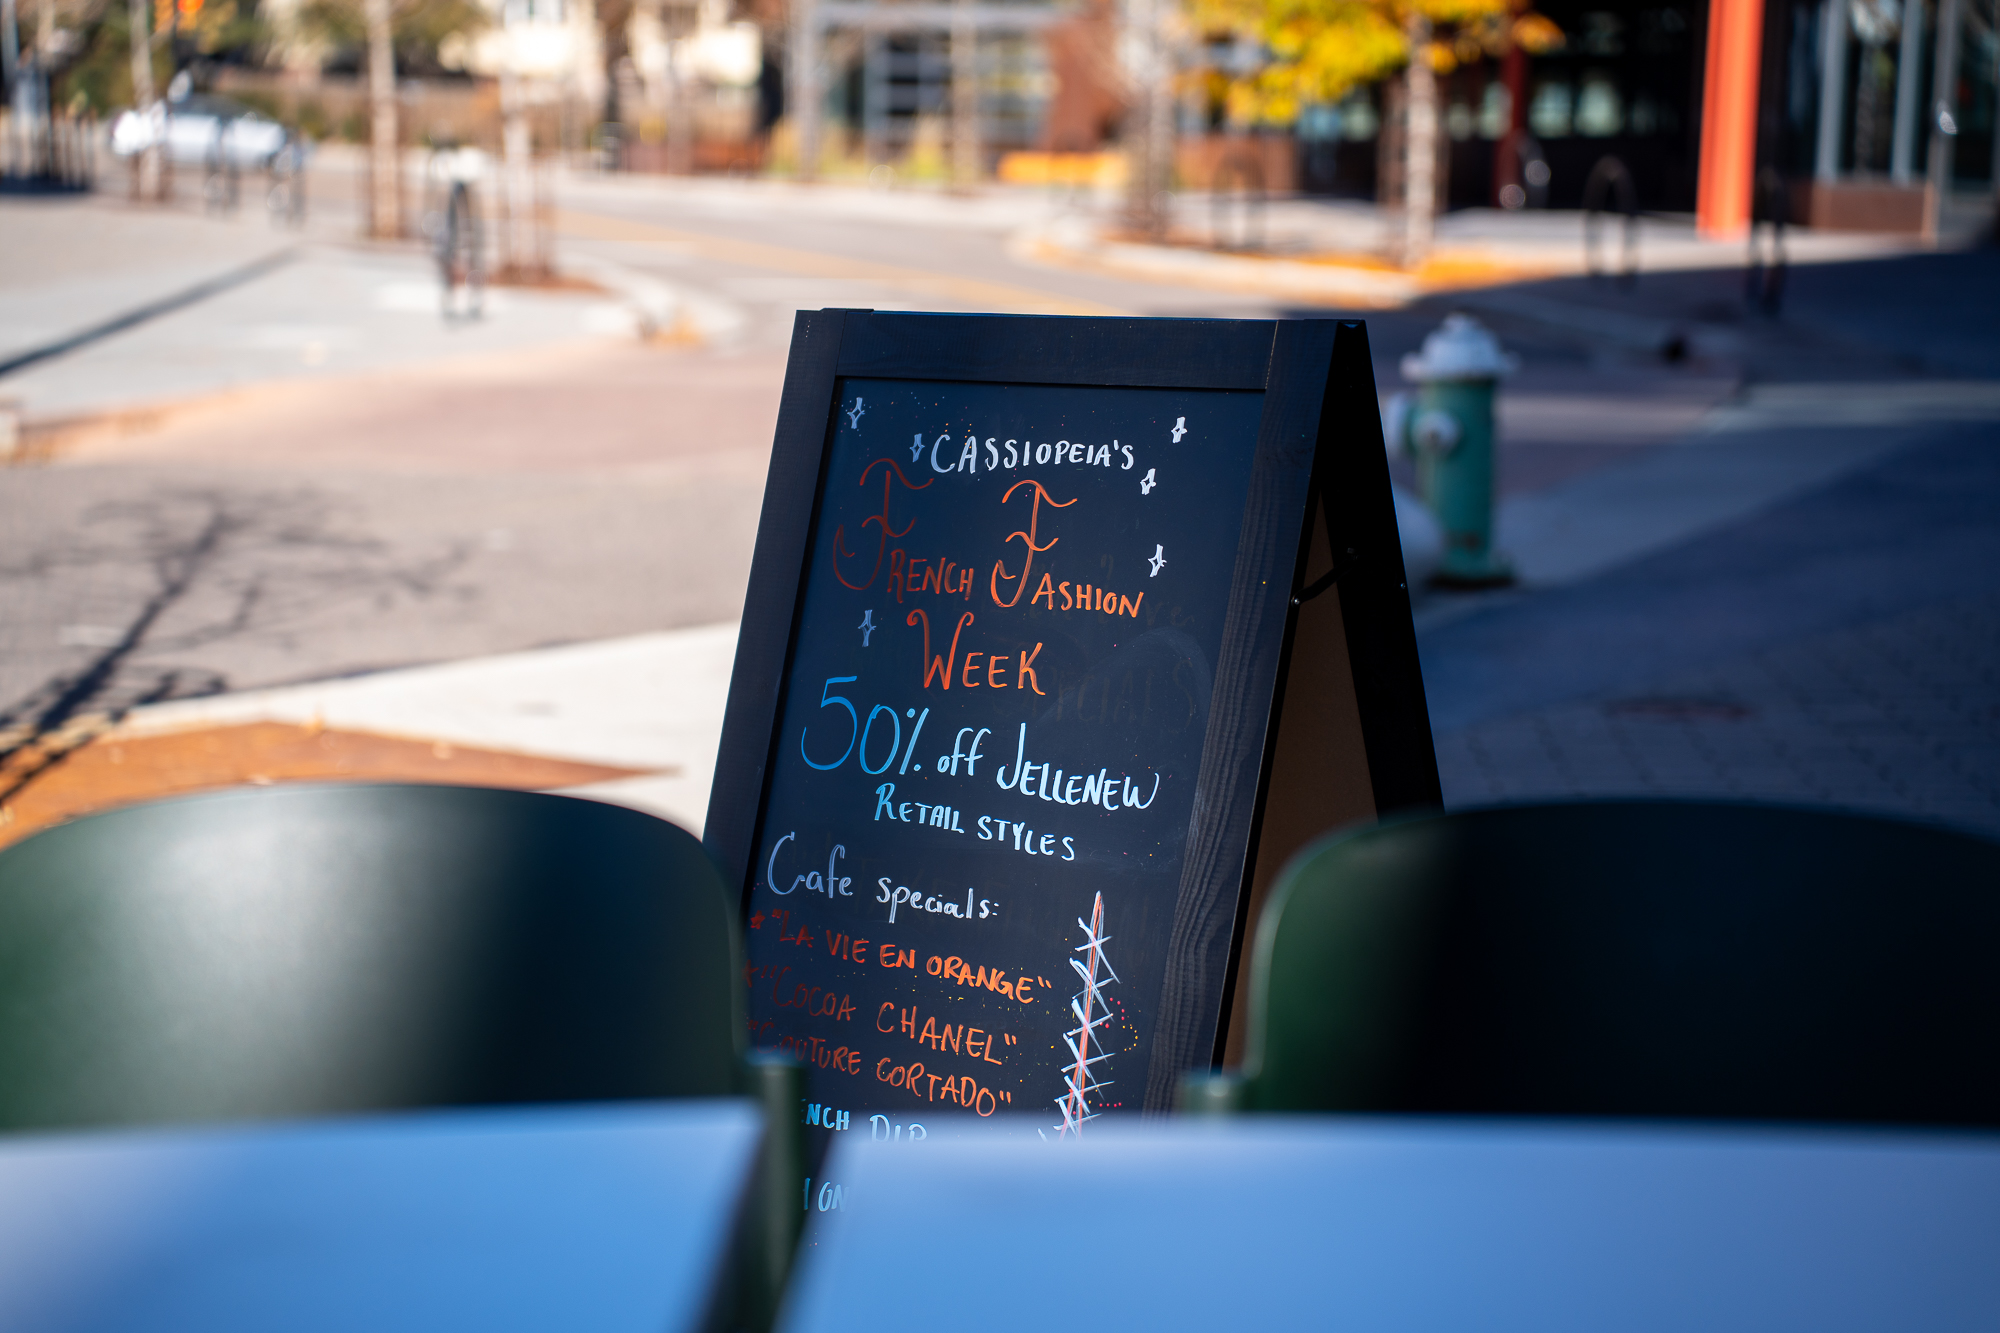 CASSIOPEIA'S
FRENCH FASHION
WEEK
50% off JELLENEW
RETAIL STYLES
Cafe specials:
* "LA VIE EN ORANGE"
* "COCOA CHANEL"
"COUTURE CORTADO"
DIP
ON